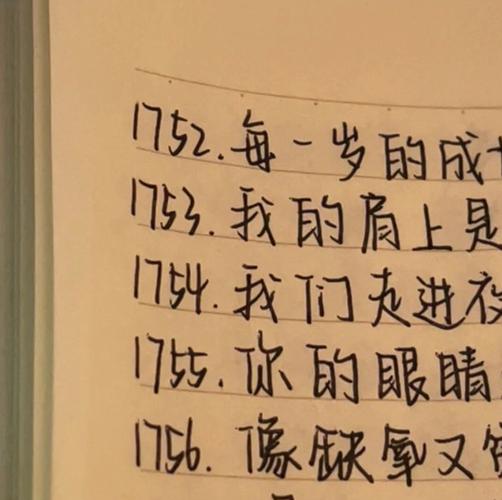 1752.每一岁的成
1753.我的肩上是
1754.我们走进夜
1755.你的眼睛
1756.像缺氧又